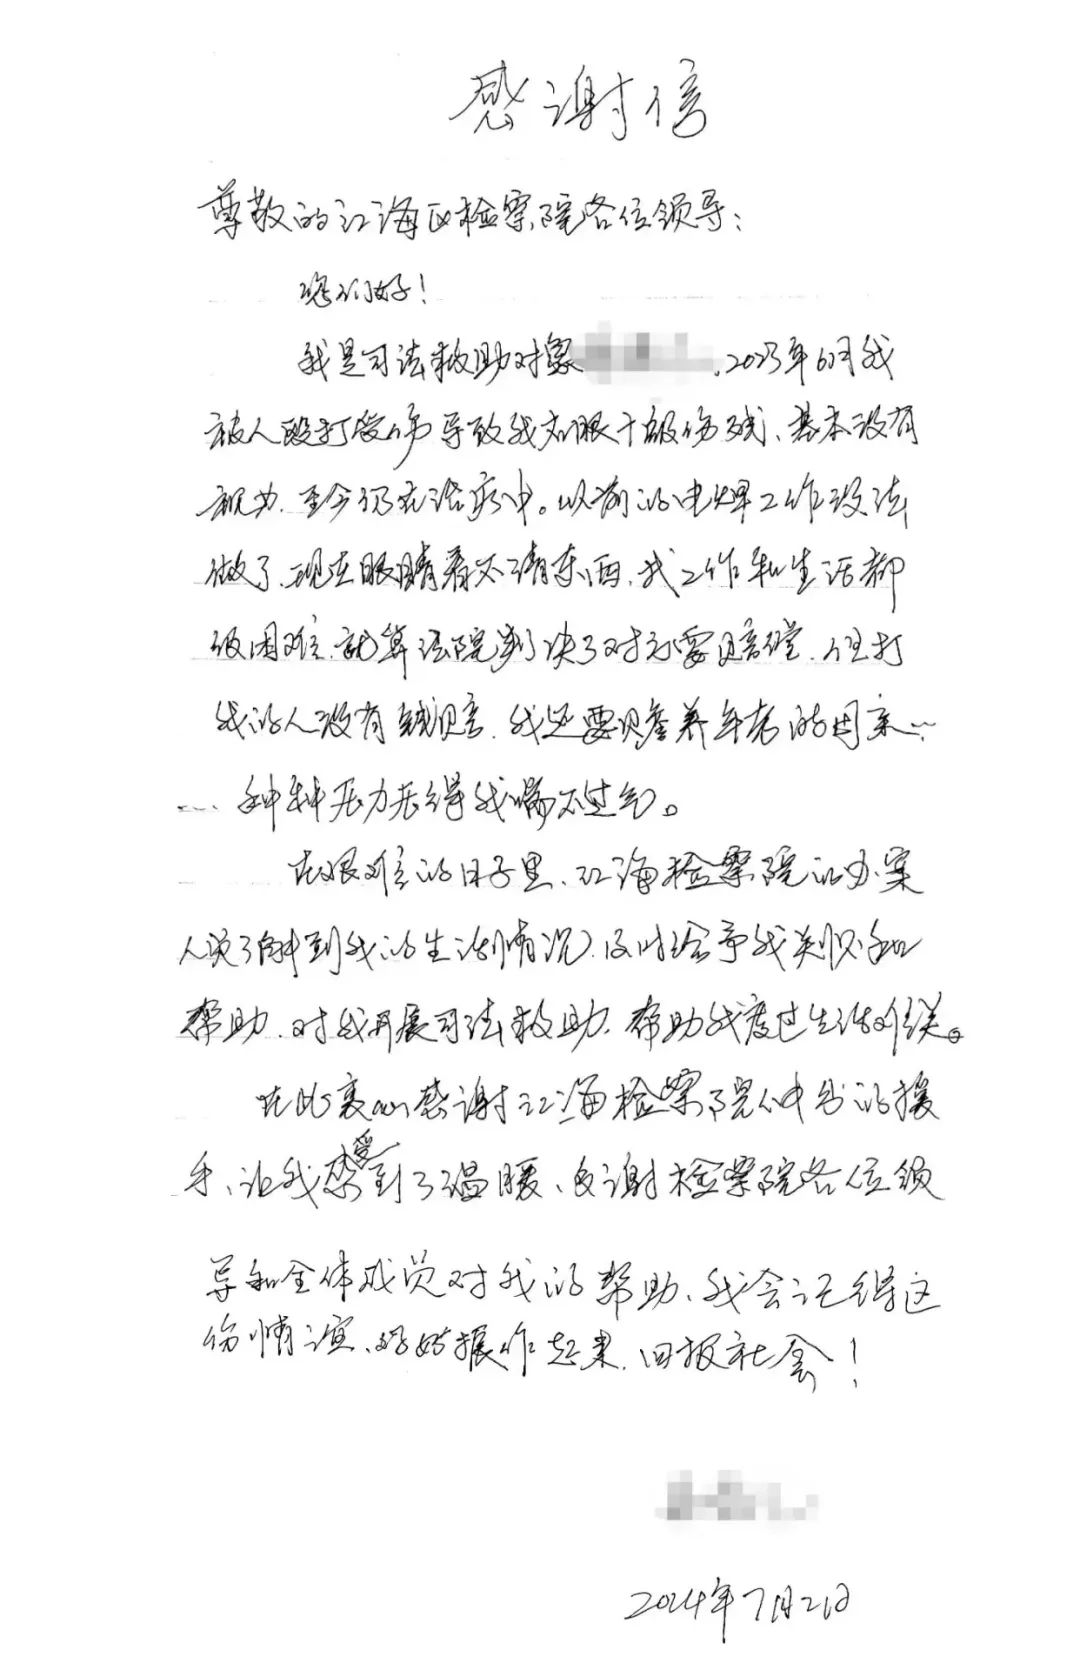 感谢信
尊敬的江海区检察院各位领导：
您们好！
我是司法救助对象，2023年6月我
被人殴打受伤导致我右眼十级伤残、基本没有
视力，至今仍无法康复中。以前的电焊工作没法
做了，现在眼睛看不清东西，我工作和生活都
很困难，就算法院判决了对方要赔偿，但打
我的人没有钱赔，我还要赡养年老的母亲……
种种压力压得我喘不过气。
在艰难的日子里，江海检察院的办案
人员了解到我的生活情况，及时给予我关怀和
帮助，对我开展司法救助，帮助我度过生活难关。
在此衷心感谢江海检察院伸出的援
手，让我感受到了温暖，多谢检察院各位领
导和全体成员对我的帮助，我会记得这
份情谊，好好振作起来，回报社会！
2024年7月2日